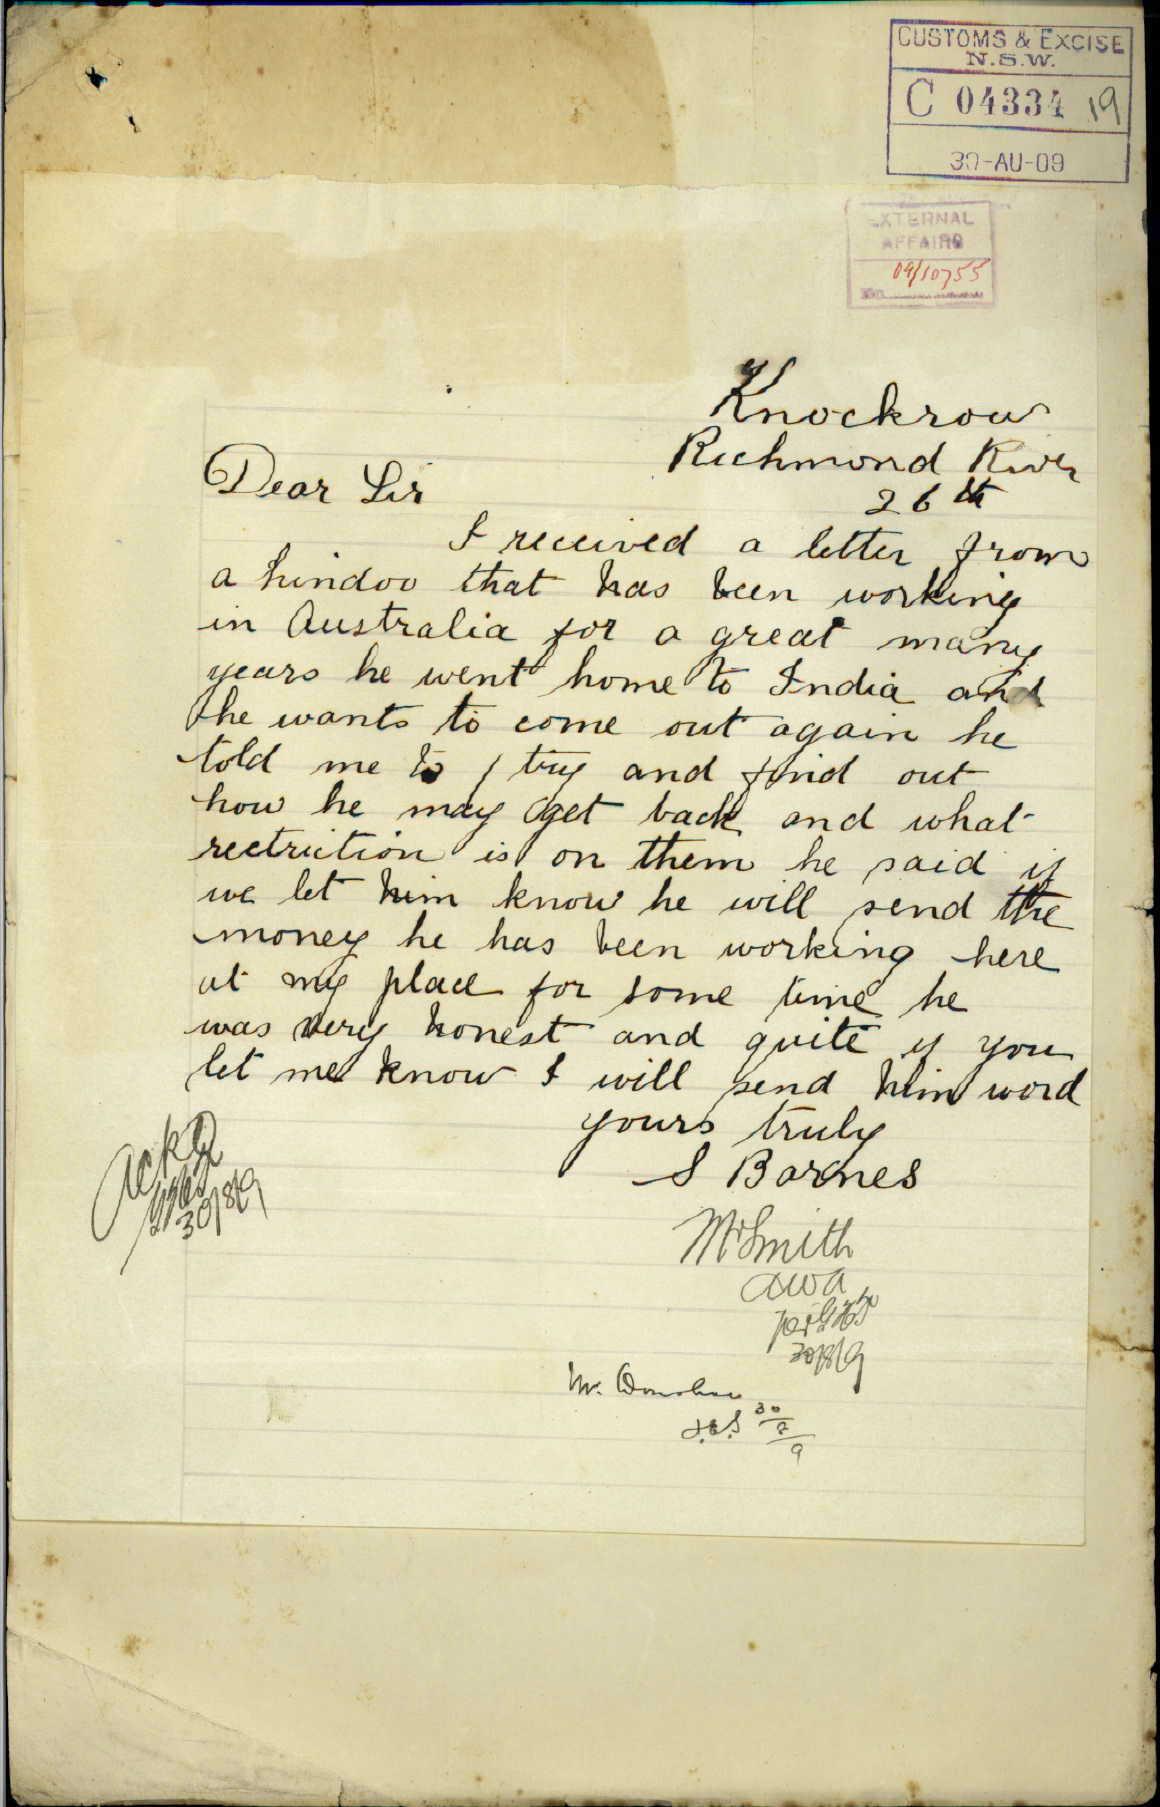 CUSTOMS & EXCISE
N.S.W.
C 04334 19
30-AU-09
EXTERNAL
AFFAIRS
09/10755
Knockrow
Richmond River
26th
Dear Sir
I received a letter from
a hindoo that has been working
in Australia for a great many
years he went home to India and
he wants to come out again he
told me to try and find out
how he may get back and what
rectriction is on them he said if
we let him know he will send the
money he has been working here
at my place for some time he
was very honest and quite if you
let me know I will send him word
yours truly
S Barnes
Ackd
30/8/9
Mr Smith
30/8/9
Mr. Donohue
30/8/9